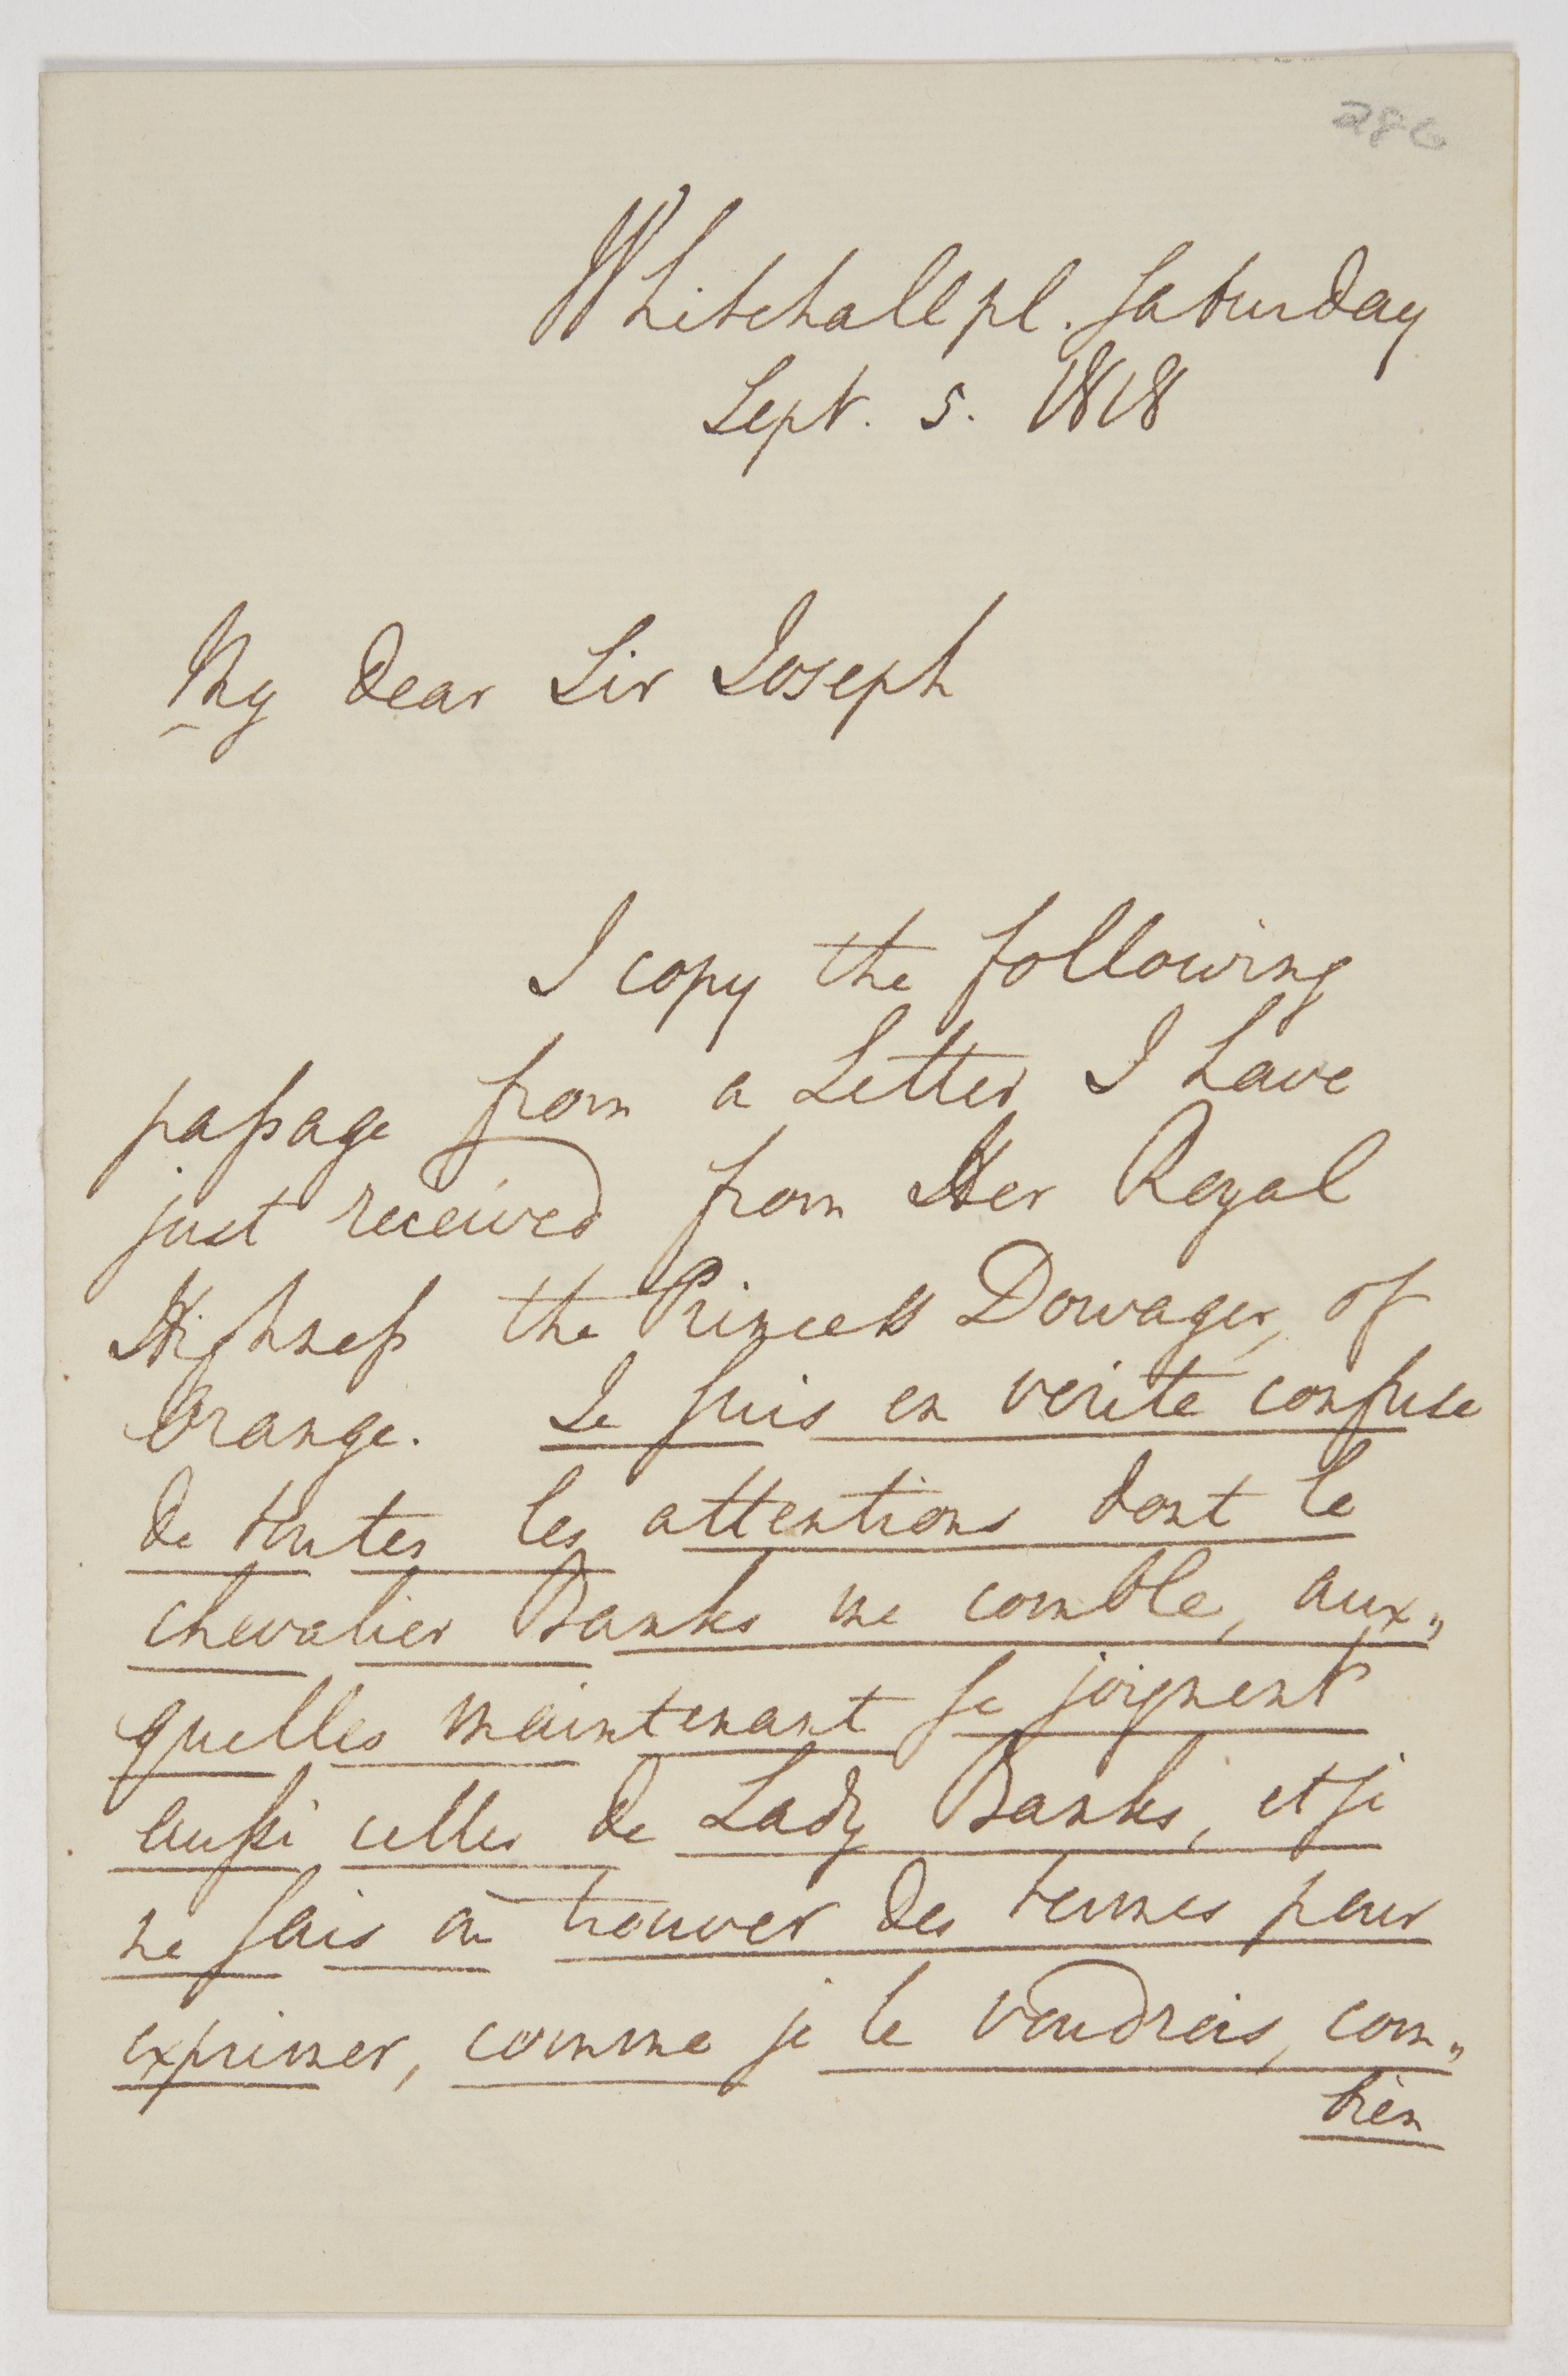 286
Whitehall pl. Saturday
Sept. 5. 1818
My dear Sir Joseph
I copy the following
passage from a Letter I have
just received from Her Royal
Highness the Princess Dowager, of
Orange. Je suis en verite confuse
de toutes les attentions dont le
chevalier Banks me comble, aux„
quelles maintenant se joignent
aussi celles de Lady Banks, et je
ne sais où trouver des termes pour
exprimer, comme je le voudrais, com„
bien